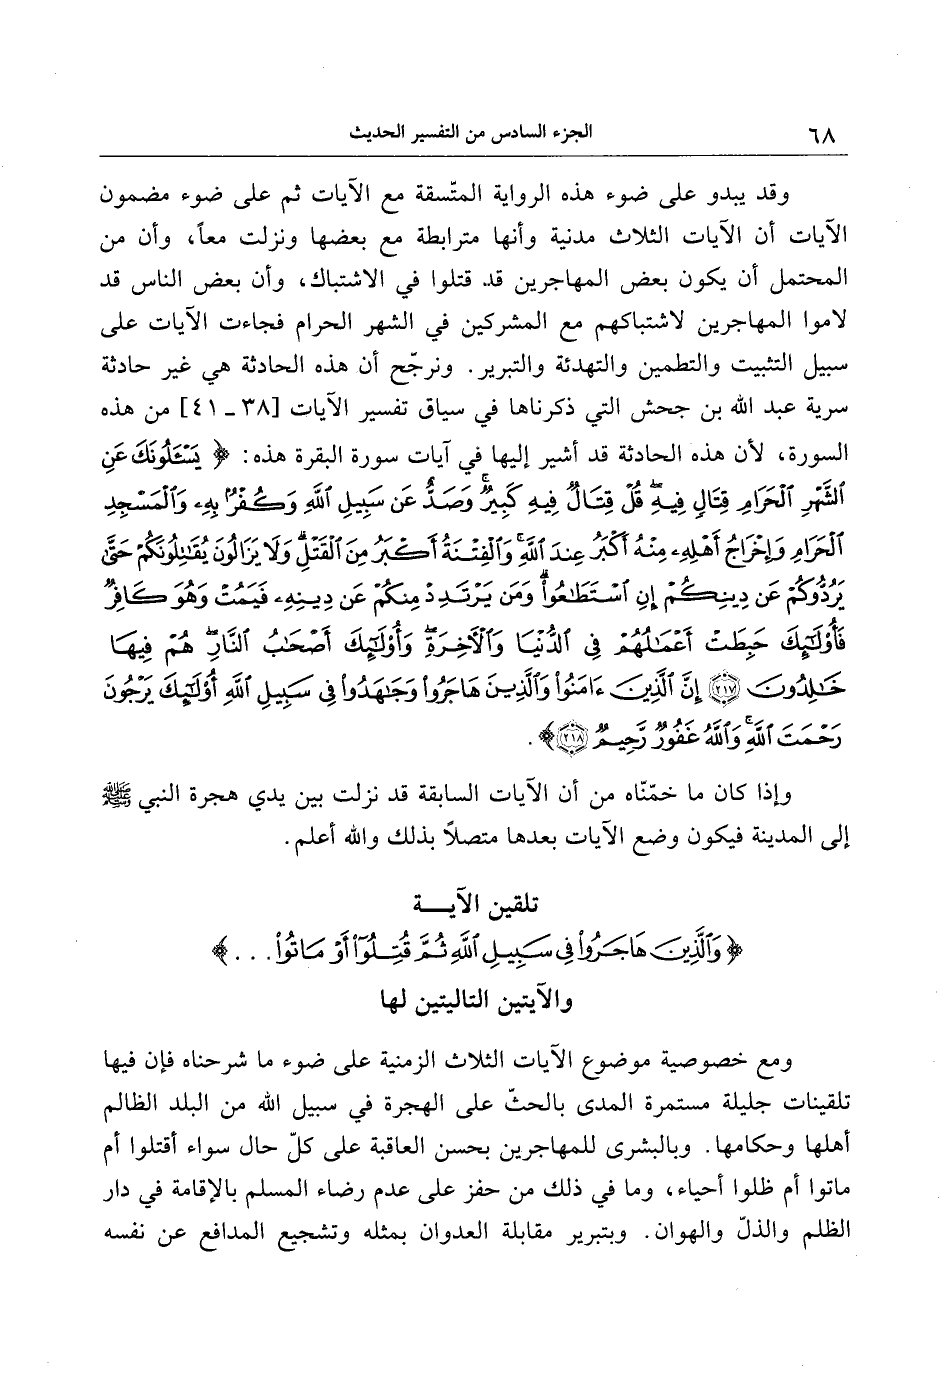 ٦٨
الجزء السادس من التفسير الحديث
وقد يبدو على ضوء هذه الرواية المتّسقة مع الآيات ثم على ضوء مضمون
الآيات أن الآيات الثلاث مدنية وأنها مترابطة مع بعضها ونزلت معاً، وأن من
المحتمل أن يكون بعض المهاجرين قد قتلوا في الاشتباك، وأن بعض الناس قد
لاموا المهاجرين لاشتباكهم مع المشركين في الشهر الحرام فجاءت الآيات على
سبيل التثبيت والتطمين والتهدئة والتبرير. ونرجّح أن هذه الحادثة هي غير حادثة
سرية عبد الله بن جحش التي ذكرناها في سياق تفسير الآيات [٣٨ ـ ٤١] من هذه
السورة، لأن هذه الحادثة قد أشير إليها في آيات سورة البقرة هذه: ﴿ يَسْـَٔلُونَكَ عَنِ
ٱلشَّهْرِ ٱلْحَرَامِ قِتَالٍ فِيهِۖ قُلْ قِتَالٌ فِيهِ كَبِيرٌۚ وَصَدٌّ عَن سَبِيلِ ٱللَّهِ وَكُفْرٌۢ بِهِۦ وَٱلْمَسْجِدِ
ٱلْحَرَامِ وَإِخْرَاجُ أَهْلِهِۦ مِنْهُ أَكْبَرُ عِندَ ٱللَّهِۚ وَٱلْفِتْنَةُ أَكْبَرُ مِنَ ٱلْقَتْلِۗ وَلَا يَزَالُونَ يُقَٰتِلُونَكُمْ حَتَّىٰ
يَرُدُّوكُمْ عَن دِينِكُمْ إِنِ ٱسْتَطَٰعُوا۟ۚ وَمَن يَرْتَدِدْ مِنكُمْ عَن دِينِهِۦ فَيَمُتْ وَهُوَ كَافِرٌ
فَأُو۟لَٰٓئِكَ حَبِطَتْ أَعْمَٰلُهُمْ فِى ٱلدُّنْيَا وَٱلْءَاخِرَةِۖ وَأُو۟لَٰٓئِكَ أَصْحَٰبُ ٱلنَّارِۖ هُمْ فِيهَا
خَٰلِدُونَ ٢١٧ إِنَّ ٱلَّذِينَ ءَامَنُوا۟ وَٱلَّذِينَ هَاجَرُوا۟ وَجَٰهَدُوا۟ فِى سَبِيلِ ٱللَّهِ أُو۟لَٰٓئِكَ يَرْجُونَ
رَحْمَتَ ٱللَّهِۚ وَٱللَّهُ غَفُورٌ رَّحِيمٌ ٢١٨ ﴾.
وإذا كان ما خمّنّاه من أن الآيات السابقة قد نزلت بين يدي هجرة النبي ﷺ
إلى المدينة فيكون وضع الآيات بعدها متصلاً بذلك والله أعلم.
تلقين الآيــة
﴿ وَٱلَّذِينَ هَاجَرُوا۟ فِى سَبِيلِ ٱللَّهِ ثُمَّ قُتِلُوٓا۟ أَوْ مَاتُوا۟. . . ﴾
والآيتين التاليتين لها
ومع خصوصية موضوع الآيات الثلاث الزمنية على ضوء ما شرحناه فإن فيها
تلقينات جليلة مستمرة المدى بالحثّ على الهجرة في سبيل الله من البلد الظالم
أهلها وحكامها. وبالبشرى للمهاجرين بحسن العاقبة على كلّ حال سواء أقتلوا أم
ماتوا أم ظلوا أحياء، وما في ذلك من حفز على عدم رضاء المسلم بالإقامة في دار
الظلم والذلّ والهوان. وبتبرير مقابلة العدوان بمثله وتشجيع المدافع عن نفسه